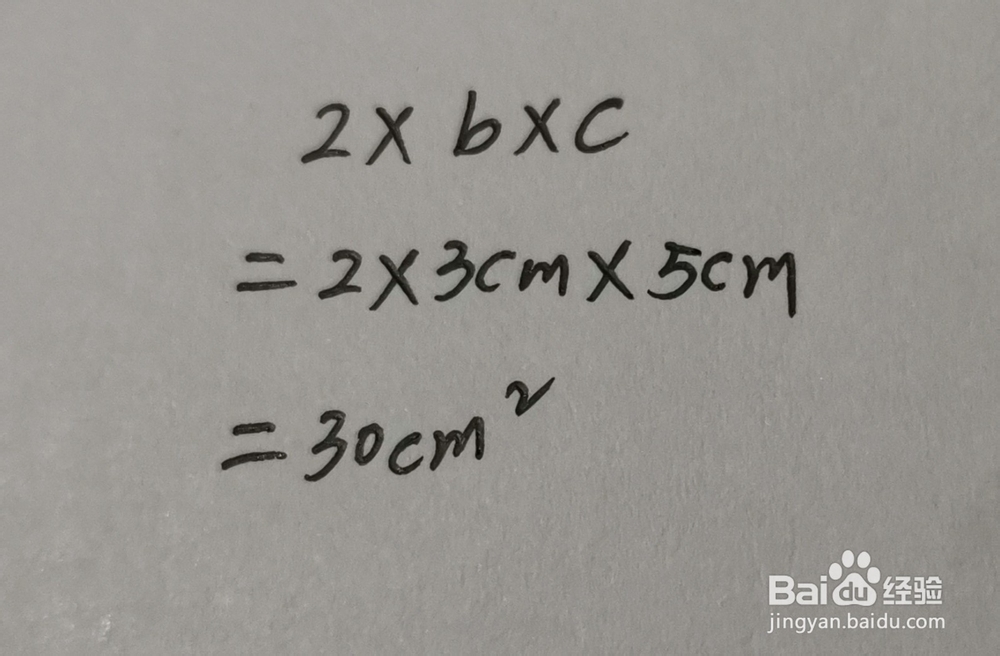 2×b×c
=2×3cm×5cm
=30cm²
Baidu经验
jingyan.baidu.com